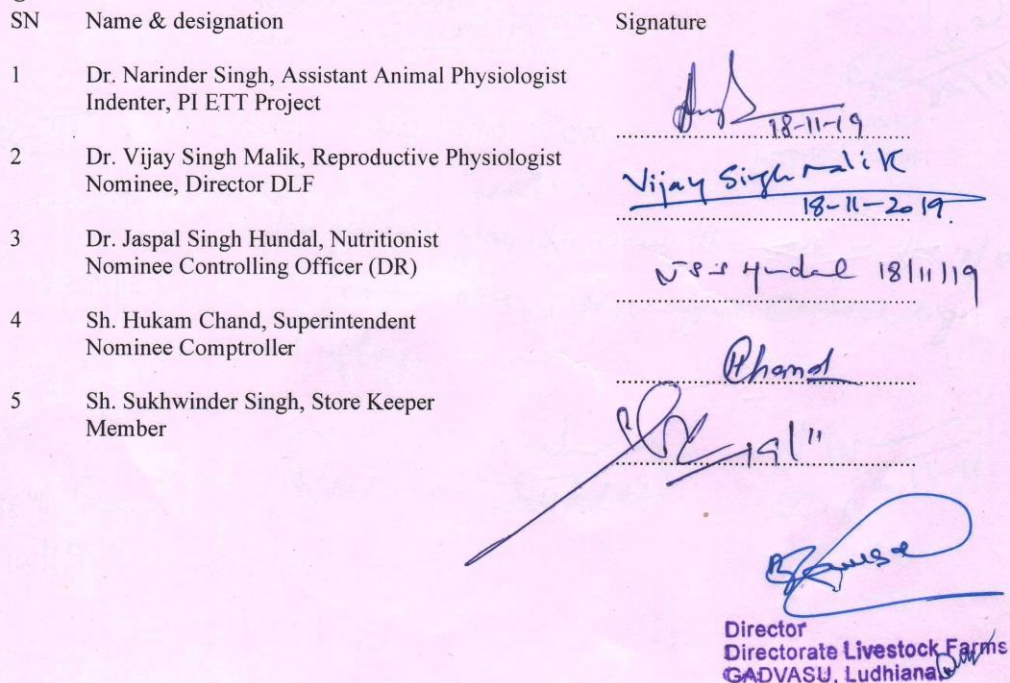 SN Name & designation Signature
1 Dr. Narinder Singh, Assistant Animal Physiologist
Indenter, PI ETT Project
18-11-19
2 Dr. Vijay Singh Malik, Reproductive Physiologist
Nominee, Director DLF
Vijay Singh Malik
18-11-2019
3 Dr. Jaspal Singh Hundal, Nutritionist
Nominee Controlling Officer (DR)
Hundal 18/11/19
4 Sh. Hukam Chand, Superintendent
Nominee Comptroller
5 Sh. Sukhwinder Singh, Store Keeper
Member
19/11
Director
Directorate Livestock Farms
GADVASU, Ludhiana